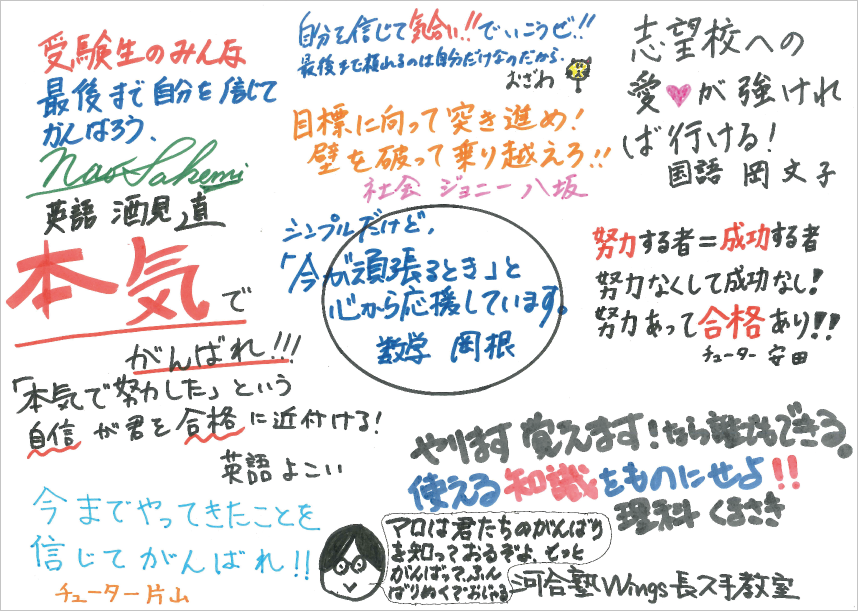 受験生のみんな
最後まで自分を信じて
がんばろう、
Nao Sakemi
英語 酒見 直
自分を信じて気合い!!でいこうぜ!!
最後まで頼れるのは自分だけなのだから、
おざわ
目標に向って突き進め!
壁を破って乗り越えろ!!
社会 ジョニー八坂
志望校への
愛♥が強けれ
ば行ける!
国語 岡 文子
本気で
がんばれ!!!
「本気で努力した」という
自信が君を合格に近付ける!
英語 よこい
シンプルだけど、
「今が頑張るとき」と
心から応援しています。
数学 岡根
努力する者=成功する者
努力なくして成功なし!
努力あって合格あり!!
チューター 安田
やります 覚えます!なら誰でもできる。
使える知識をものにせよ!!
理科 くまさき
今までやってきたことを
信じてがんばれ!!
チューター片山
マロは君たちのがんばり
を知っておるぞよ、もっと
がんばって、ふん
ばりぬくでおじゃる
河合塾Wings長久手教室